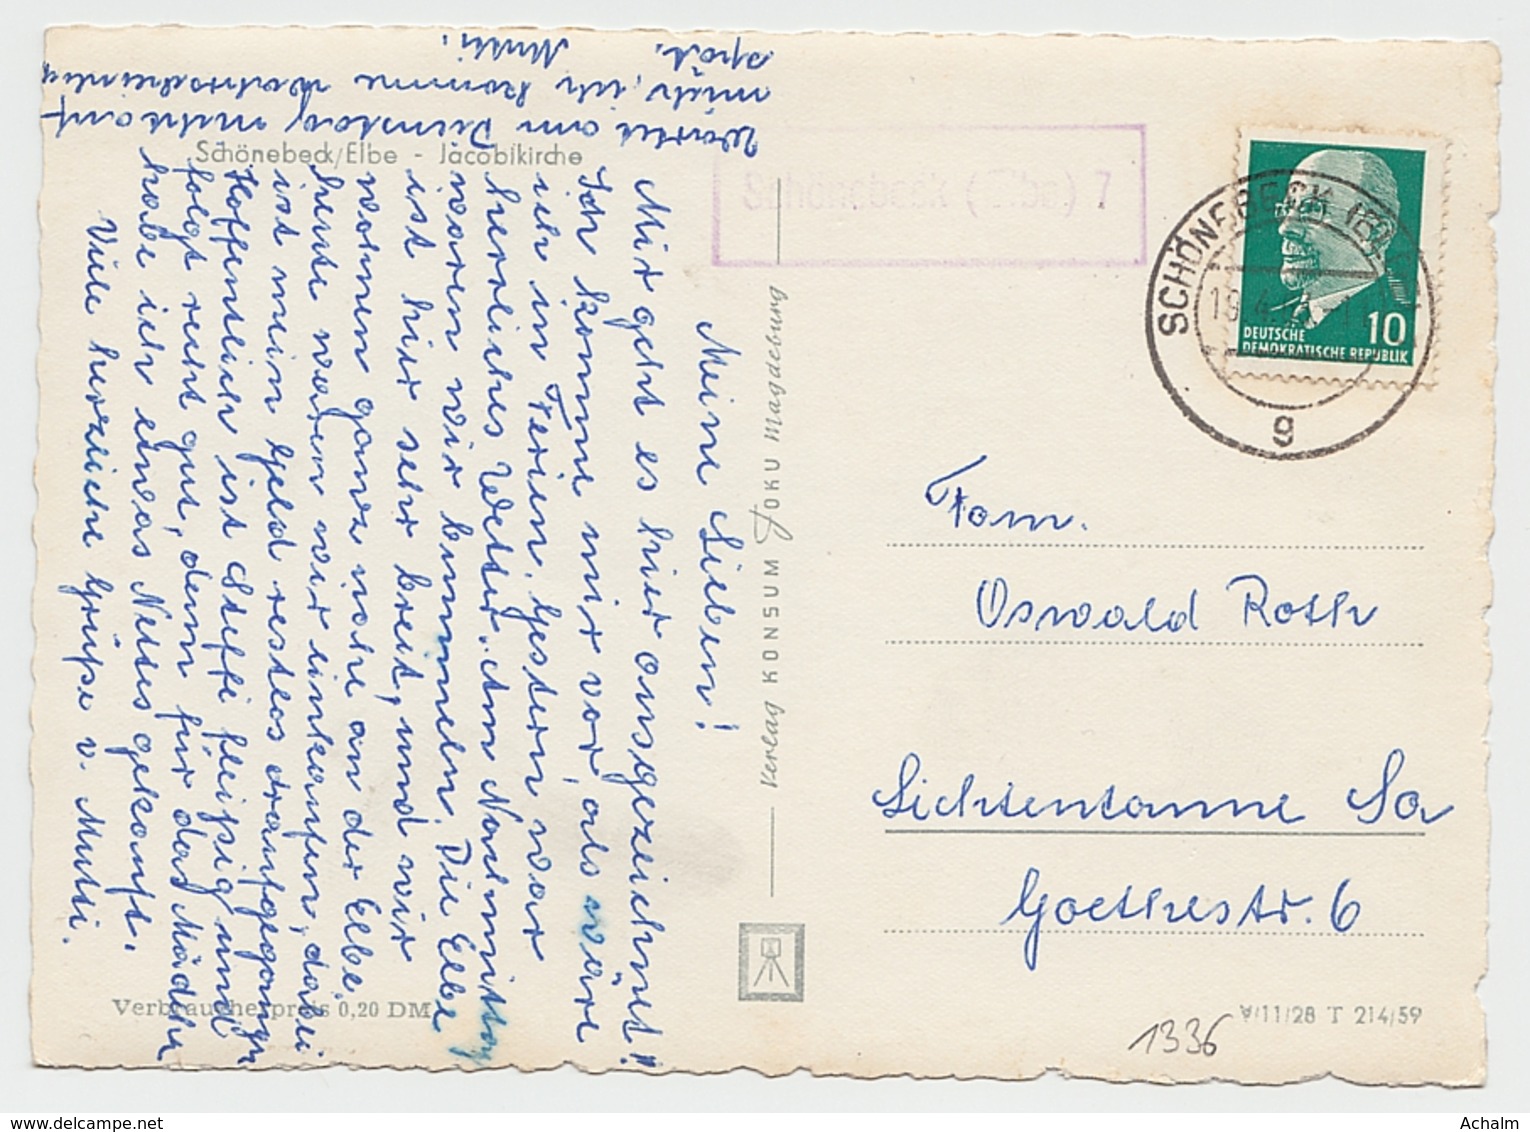 Meine Lieben!
Mir geht es hier ausgezeichnet!
Ich komme mir vor, als wäre
ich in Ferien. Gestern war
herrliches Wetter. Am Nachmittag
waren wir bummeln. Die Elbe
ist hier sehr breit, und wir
wohnen ganz nahe an der Elbe.
heute waren wir einkaufen, dabei
ist mein Geld restlos draufgegangen.
Hoffentlich ist Steffi fleißig und
folgt recht gut, denn für das Mädchen
habe ich etwas Nettes gekauft.
Viele herzliche Grüße v. Mutti.
Wartet am Dienstag nicht auf
mich, ich komme wahrscheinlich
spät.
Mutti.
Schönebeck/Elbe - Jacobikirche
Verbraucherpreis 0,20 DM
Verlag KONSUM FOKU Magdeburg
Schönebeck (Elbe) 7
SCHÖNEBECK (ELBE)
g
10
DEUTSCHE
DEMOKRATISCHE REPUBLIK
Fam.
Oswald Roth
Lichtentanne Sa
Goethestr. 6
V/11/28 T 214/59
1336
Achalm